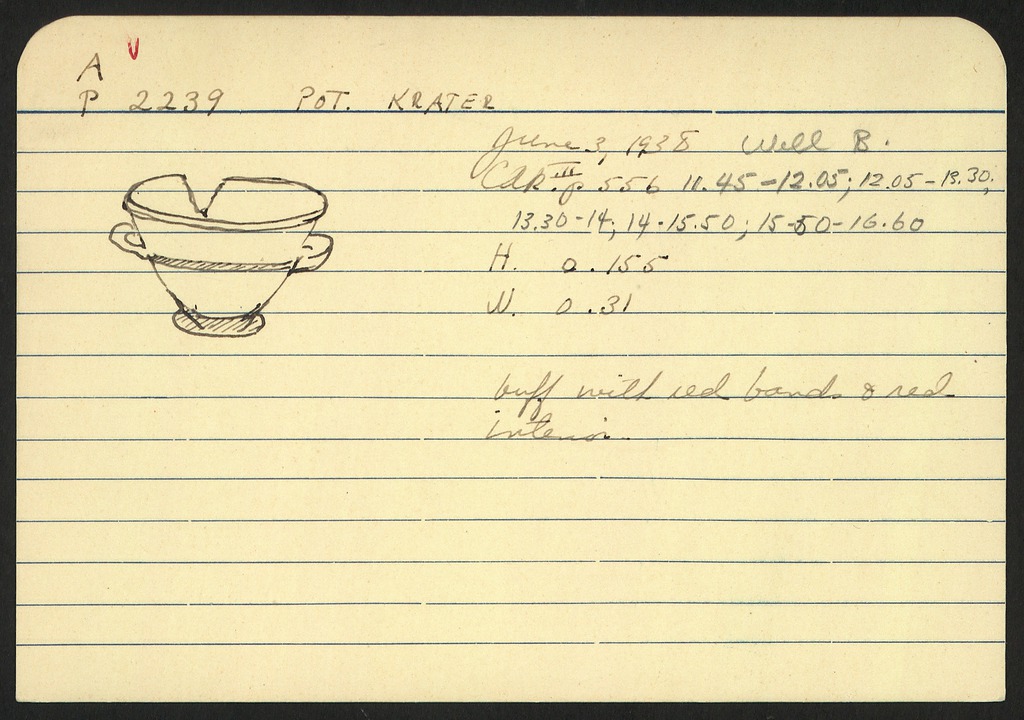 A
P 2239 POT. KRATER
June 3, 1938 Well B.
CAR. III p 556 11.45-12.05; 12.05-13.30;
13.30-14; 14-15.50; 15-50-16.60
H. 0.155
W. 0.31
buff with red bands & red
interior.